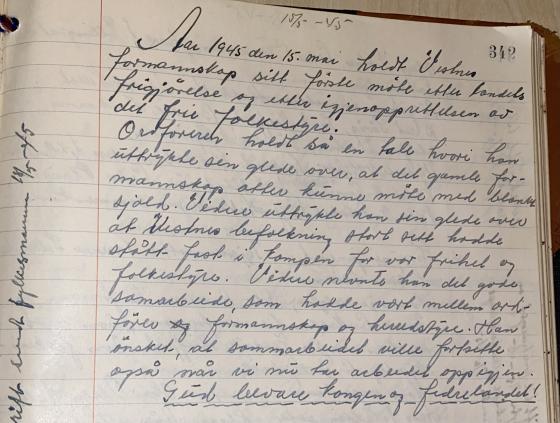 15/5 - 45
342
Aar 1945 den 15. mai holdt Vestnes
formannskap sitt förste möte etter landets
frigjörelse og etter igjenopprettelsen av
det frie folkestyre.
Ordföreren holdt så en tale hvori han
uttrykte sin glede over, at det gamle for-
mannskap atter kunne möte med blankt
skjold. Videre uttrykte han sin glede over
at Vestnes befolkning stort sett hadde
stått fast i kampen for vor frihet og
folkestyre. Videre nevnte han det gode
samarbeide, som hadde vært mellem ord-
förer og formannskap og herredstyre. Han
önsket, at sammarbeidet ville fortsette
også når vi nu tar arbeidet opp igjen.
Gud bevare kongen og fedrelandet!
rift sendt fylkesmannen 16/5-45